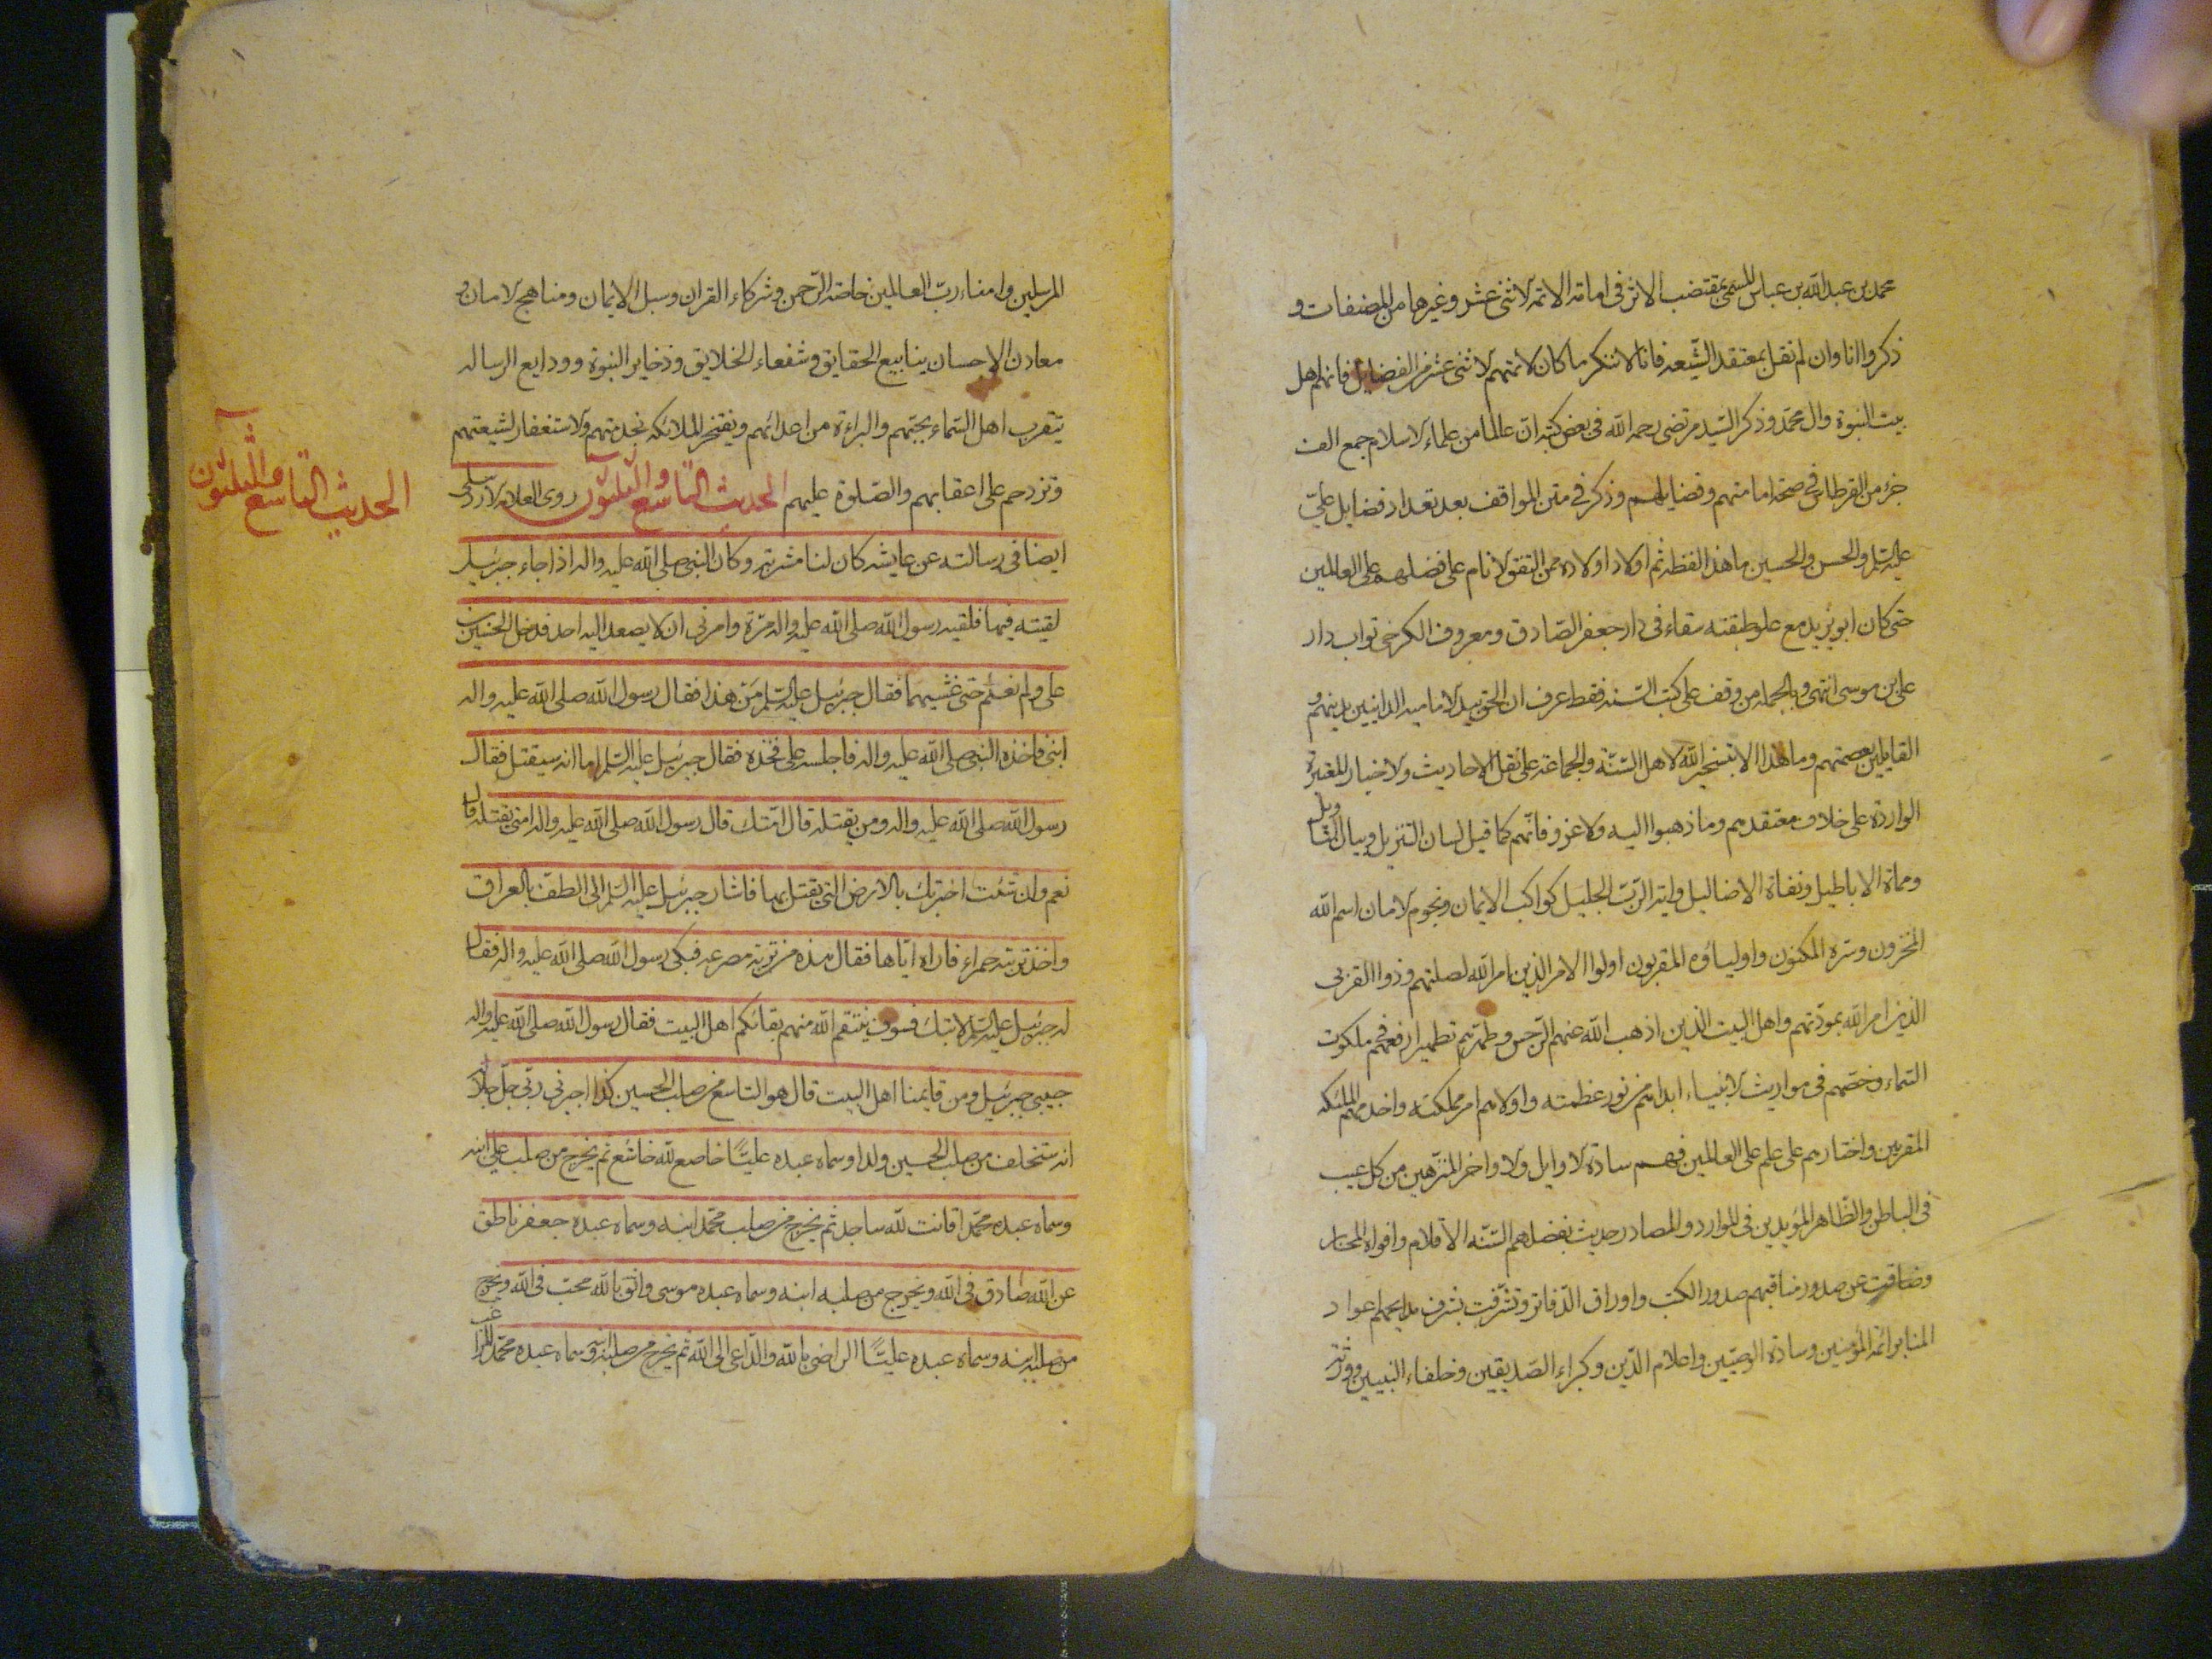 محمد بن عبد الله بن عباس المسمى بمقتضب الاثر فى امامة الائمه الاثنى عشر وغيرها من المصنفات و
ذكروا انا وان لم نقل بمعتقد الشيعه فانا لا ننكر ما كان لائمتهم الاثنى عشر من الفضايل فانهم اهل
بيت النبوة وال محمد وذكر السيد مرتضى رحمه الله فى بعض كتبه ان عالما من علماء الاسلام جمع الف
جزء من القرطاس فى صحة امامتهم وفضايلهم وذكر فى متن المواقف بعد تعداد فضايل على
عليه السلم والحسن والحسين ما هذا لفظه ثم اولاد اولاده ممن اتفق الانام على فضلهم على العالمين
حتى كان ابو يزيد مع علو طبقته سقاء فى دار جعفر الصادق ومعروف الكرخى بواب دار
على بن موسى انتهى وبالجمله من وقف على كتب السنه فقط عرف ان الحق بيد الاماميه الداينين بدينهم و
القايلين بعصمتهم وما هذا الا بتسخير الله لاهل السنة والجماعة على نقل الاحاديث والاخبار المعتبرة
الواردة على خلاف معتقدهم وما ذهبوا اليه ولا غرو فانهم كما قيل لسان التنزيل وبيان التاويل
وحماة الاباطيل ونفاة الاضاليل واية الرب الجليل كواكب الايمان ونجوم الامان اسم الله
المخزون وسره المكنون واولياؤه المقربون اولوا الامر الذين امر الله لصلتهم وذوا القربى
الذين امر الله بمودتهم واهل البيت الذين اذهب الله عنهم الرجس وطهرهم تطهيرا رفعهم فى ملكوت
السماء وخصهم فى مواريث الانبياء ابداهم من نور عظمته واولاهم امر مملكته واخدمهم الملئكه
المقربين واختارهم على علم على العالمين فهم سادة الاوايل والاواخر المنزهين من كل عيب
فى الباطن والظاهر المؤيدين فى الموارد والمصادر حديث بفضلهم السنة الاقلام وافواه المحابر
وضاقت عن صدور مناقبهم صدور الكتب واوراق الدفاتر وتشرفت بشرف مدايحهم اعواد
المنابر ائمة المؤمنين وسادة الوصيين واعلام الدين وكبراء الصديقين وخلفاء النبيين وورثة
المرسلين وامناء رب العالمين خاصة الرحمن وشركاء القران وسبل الايمان ومناهج الامان و
معادن الاحسان ينابيع الحقايق وشفعاء الخلايق وذخاير النبوة وودايع الرساله
يتقرب اهل السماء بحبهم والبراءة من اعدائهم ويفتخر الملائكه بخدمتهم والاستغفار لشيعتهم
وتزدحم على اعقابهم والصلوة عليهم الحديث التاسع والثلثون روى العلامه الاردبيلى
الحديث التاسع والثلثون
ايضا فى رسالته عن عايشه كان لنا مشربة وكان النبى صلى الله عليه واله اذا جاء جبرئيل
لقيته فيها فلقيه رسول الله صلى الله عليه واله مرة وامرنى ان لا يصعد اليه احد فدخل الحسين بن
على ولم نعلم حتى غشيهما فقال جبرئيل عليه السلم من هذا فقال رسول الله صلى الله عليه واله
ابنى فاخذه النبى صلى الله عليه واله فاجلسه على فخذه فقال جبرئيل عليه السلم اما انه سيقتل فقال
رسول الله صلى الله عليه واله ومن يقتله قال امتك قال رسول الله صلى الله عليه واله امتى يقتله قال
نعم وان شئت اخبرتك بالارض التى يقتل بها فاشار جبرئيل عليه السلم الى الطف بالعراق
واخذ تربة حمراء فاراه اياها فقال هذه من تربة مصرعه فبكى رسول الله صلى الله عليه واله فقال
له جبرئيل عليه السلم لا تبك فسوف ينتقم الله منهم بقائمكم اهل البيت فقال رسول الله صلى الله عليه واله
حبيبى جبرئيل ومن قايمنا اهل البيت قال هو التاسع من صلب الحسين كذا اخبرنى ربى جل جلاله
انه ستخلف من صلب الحسين ولدا وسماه عبده عليا خاضع لله خاشع ثم يخرج من صلب على ابنه
وسماه عبده محمدا قانت لله ساجد ثم يخرج من صلب محمد ابنه وسماه عبده جعفر ناطق
عن الله صادق فى الله ويخرج من صلبه ابنه وسماه عبده موسى واثق بالله محب فى الله ويخرج
من صلبه ابنه وسماه عبده عليا الراضى بالله والداعى الى الله ثم يخرج من صلبه ابنه وسماه عبده محمد المرغب